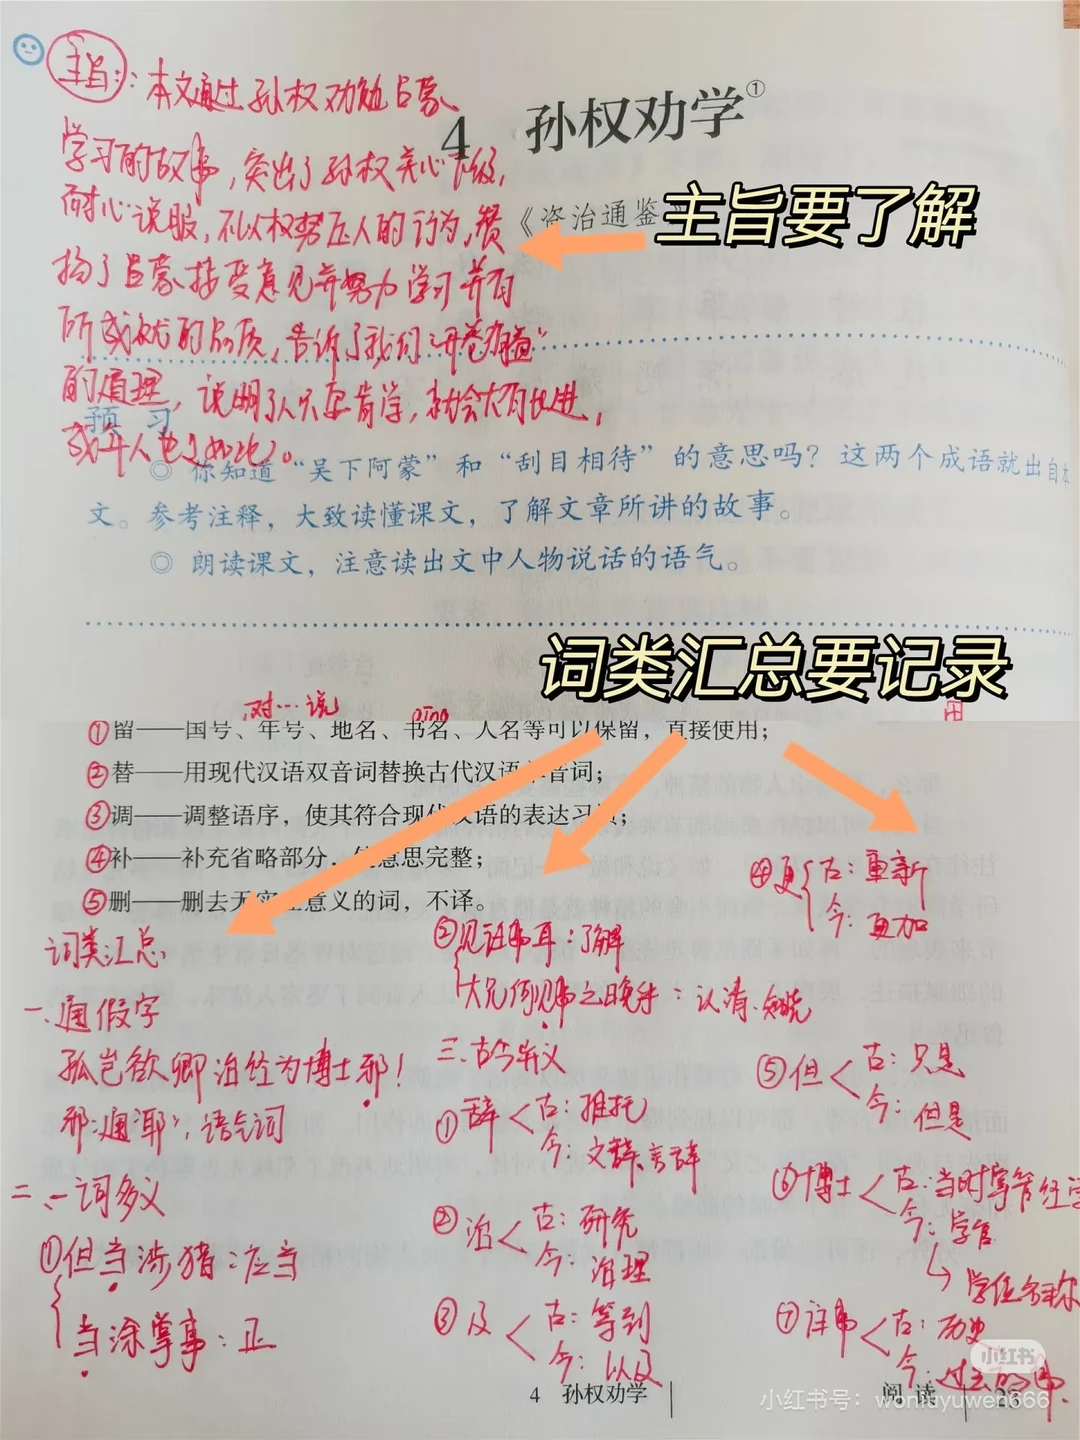 主旨：本文通过孙权劝勉吕蒙
4 孙权劝学①
学习的故事，突出了孙权关心下级，
耐心说服，不以权势压人的行为，赞
《资治通鉴》
主旨要了解
扬了吕蒙接受意见并努力学习并有
所成就的品质，告诉了我们"开卷有益"
的道理，说明了人只要肯学，就会大有长进，
预 习
成年人也如此。
◎ 你知道“吴下阿蒙”和“刮目相待”的意思吗？这两个成语就出自本
文。参考注释，大致读懂课文，了解文章所讲的故事。
◎ 朗读课文，注意读出文中人物说话的语气。
词类汇总要记录
对…说
①留——国号、年号、地名、书名、人名等可以保留，直接使用；
②替——用现代汉语双音词替换古代汉语单音词；
③调——调整语序，使其符合现代汉语的表达习惯；
④补——补充省略部分，使意思完整；
⑤删——删去无实在意义的词，不译。
词类汇总：
一、通假字
孤岂欲卿治经为博士邪！
邪：通"耶"，语气词
二、一词多义
①但当涉猎：应当
当涂掌事：正
②见往事耳：了解
大兄何见事之晚乎：认清、知晓
三、古今异义
①辞 古：推托
今：文辞、言辞
②治 古：研究
今：治理
③及 古：等到
今：以及
④更 古：重新
今：更加
⑤但 古：只是
今：但是
⑥博士 古：当时掌管经学
今：学官
学位名称
⑦往事 古：历史
今：过去的事
4 孙权劝学
阅读
23
小红书
小红书号：